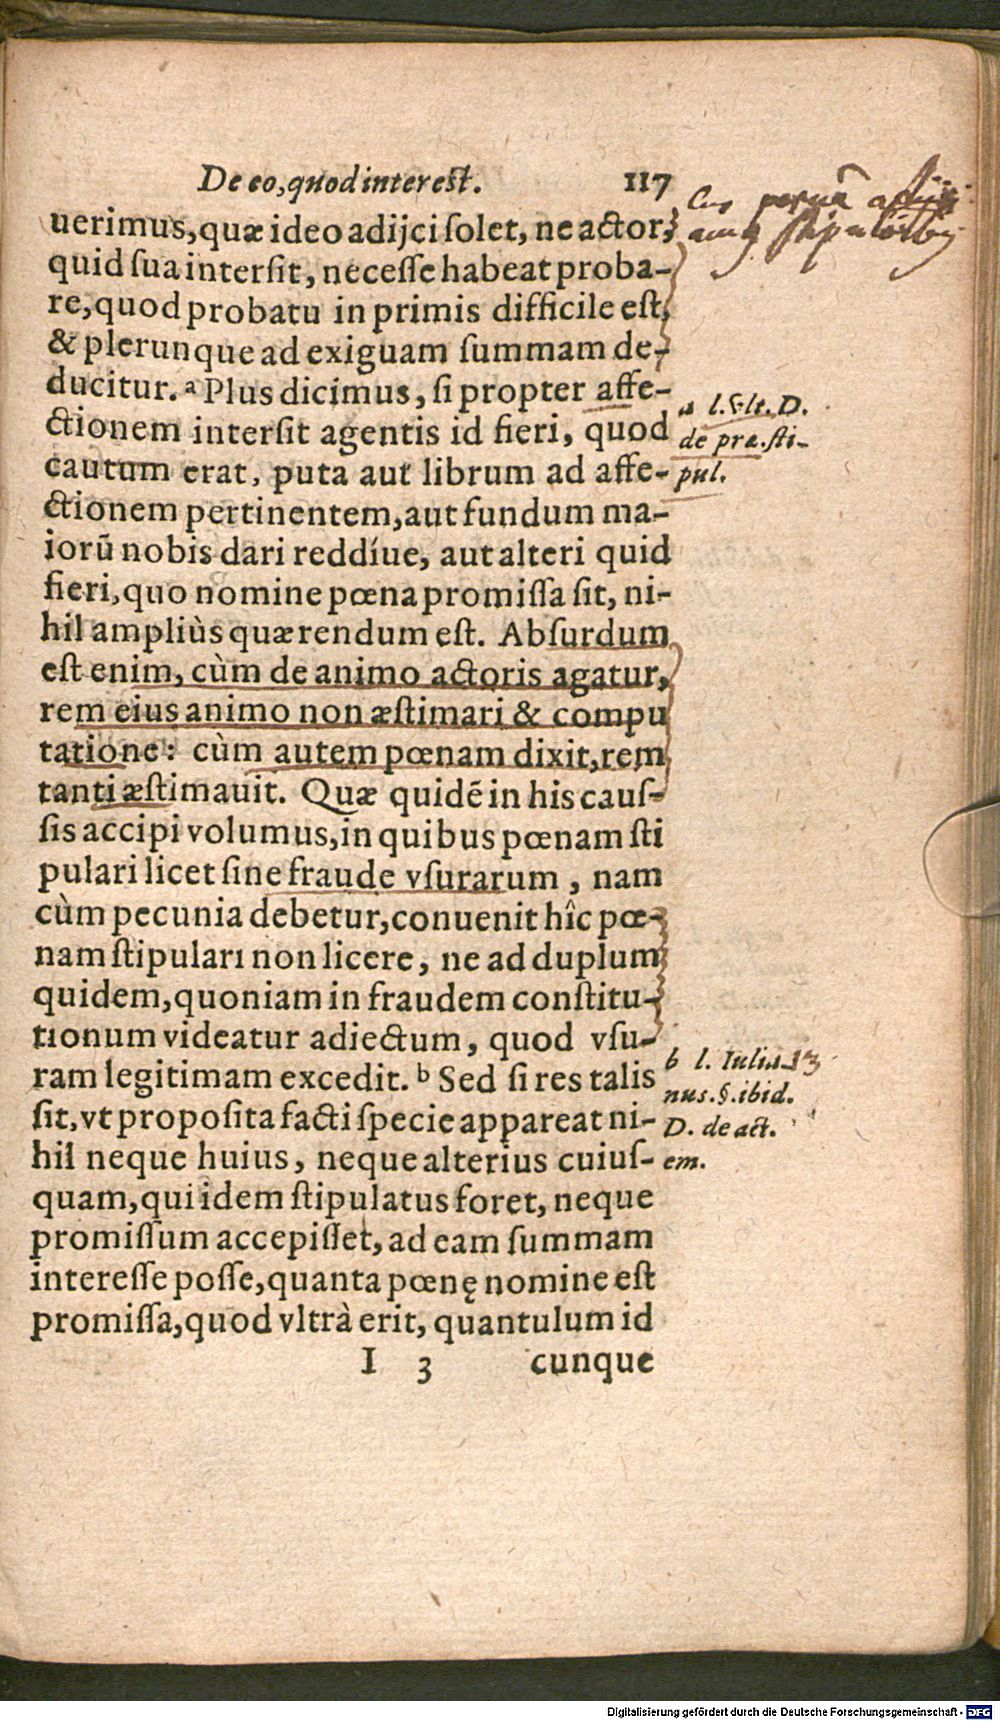 De eo, quod interest. 117
uerimus, quæ ideo adijci ſolet, ne actor,
quid ſua interſit, neceſſe habeat proba-
re, quod probatu in primis difficile eſt,
& plerunque ad exiguam ſummam de-
ducitur. ᵃ Plus dicimus, ſi propter affe-
ctionem interſit agentis id fieri, quod
cautum erat, puta aut librum ad affe-
ctionem pertinentem, aut fundum ma-
iorũ nobis dari reddíue, aut alteri quid
fieri, quo nomine pœna promiſſa ſit, ni-
hil ampliùs quærendum eſt. Abſurdum
eſt enim, cùm de animo actoris agatur,
rem eius animo non æſtimari & compu
tatione: cùm autem pœnam dixit, rem
tanti æſtimauit. Quæ quidẽ in his cauſ-
ſis accipi volumus, in quibus pœnam ſti
pulari licet ſine fraude vſurarum, nam
cùm pecunia debetur, conuenit hîc pœ-
nam ſtipulari non licere, ne ad duplum
quidem, quoniam in fraudem conſtitu-
tionum videatur adiectum, quod vſu-
ram legitimam excedit. ᵇ Sed ſi res talis
ſit, vt propoſita facti ſpecie appareat ni-
hil neque huius, neque alterius cuiuſ-
quam, qui idem ſtipulatus foret, neque
promiſſum accepiſſet, ad eam ſummam
intereſſe poſſe, quanta pœnę nomine eſt
promiſſa, quod vltrà erit, quantulum id
I 3 cunque
a l. vlt. D.
de præ. ſti-
pul.
b l. Iulia 13
nus. §. ibid.
D. de act.
em.
Digitalisierung gefördert durch die Deutsche Forschungsgemeinschaft - DFG